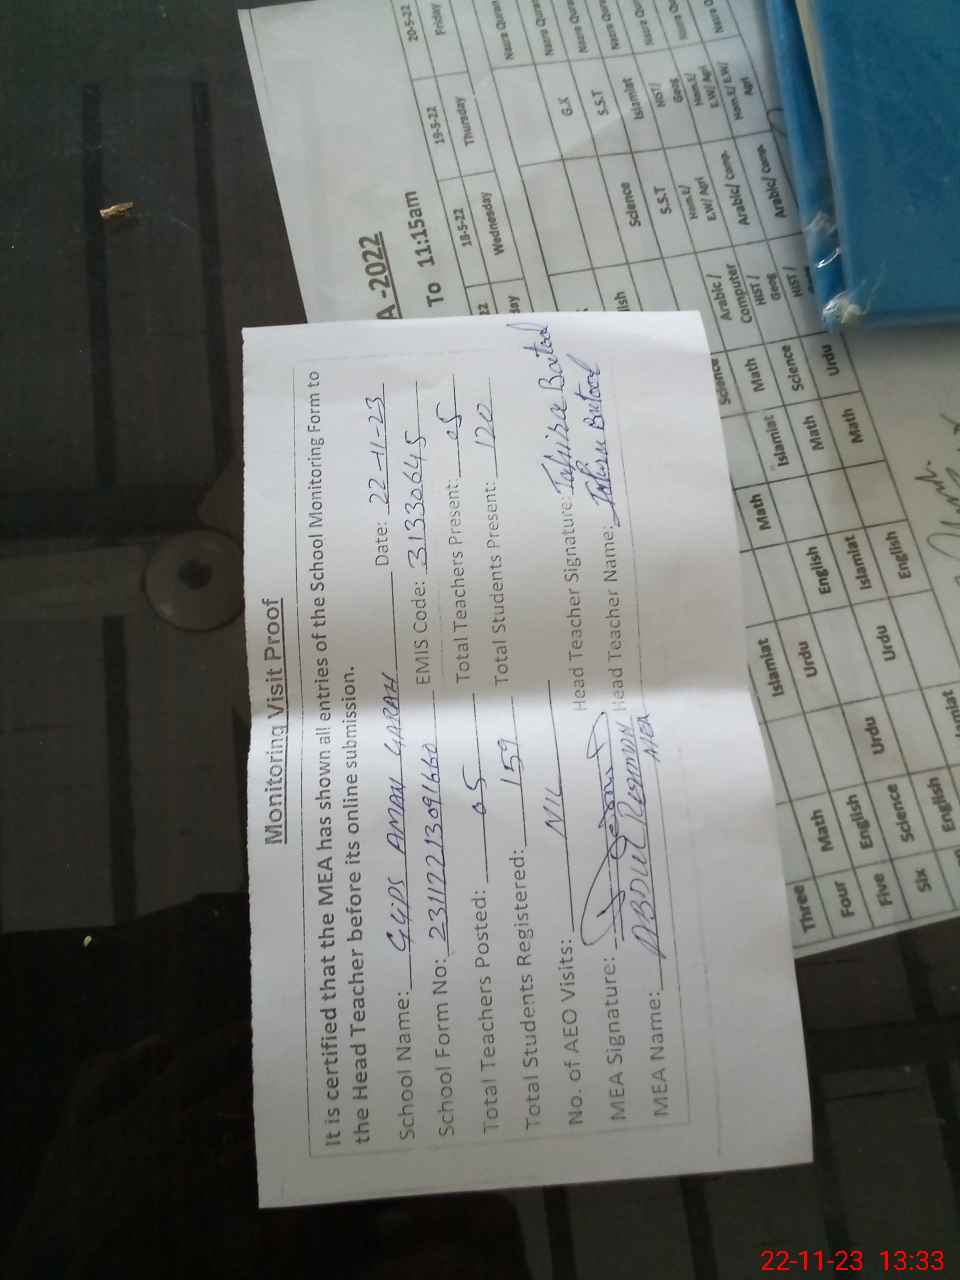 Monitoring Visit Proof
It is certified that the MEA has shown all entries of the School Monitoring Form to
the Head Teacher before its online submission.
School Name: GGPS AMAN GARAH Date: 22-11-23
School Form No: 231122213091660 EMIS Code: 31330645
Total Teachers Posted: 05 Total Teachers Present: 05
Total Students Registered: 159 Total Students Present: 120
No. of AEO Visits: NIL
MEA Signature: Head Teacher Signature: Tahira Batool
MEA Name: ABDUL REHMAN MEA Head Teacher Name: Tahira Batool
A -2022
To 11:15am
18-5-22 19-5-22 20-5-22
Wednesday Thursday Friday
Nazra Quran
G.K Nazra Quran
S.S.T Nazra Quran
Science Islamiat Nazra Quran
S.S.T HIST/ Geog
Hom.E/ E.W/ Agri Hom.E/ E.W/ Agri
Arabic/ Comp. Hom.E/ E.W/ Agri
Arabic/ Comp.
Three Islamiat Math Science Arabic/ Computer
Four Math Urdu Islamiat Math HIST/ Geog
Five English English Math Science HIST/
Six Science Urdu Islamiat Math Urdu
English Urdu English
22-11-23 13:33